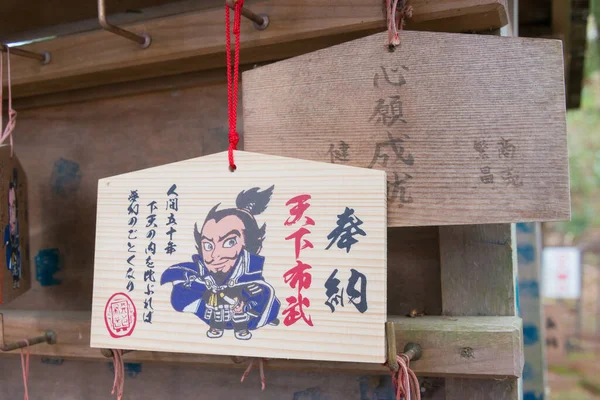 奉納
天下布武
人間五十年
下天の内を比ぶれば
夢幻のごとくなり
心願成就
商売
繁昌
健